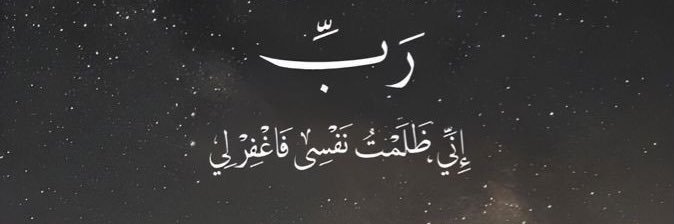 رَبِّ
إِنِّي ظَلَمْتُ نَفْسِي فَاغْفِرْ لِي